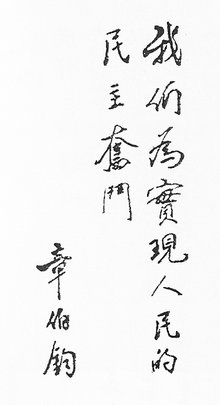 我们為實現人民的
民主奮鬥
章伯鈞